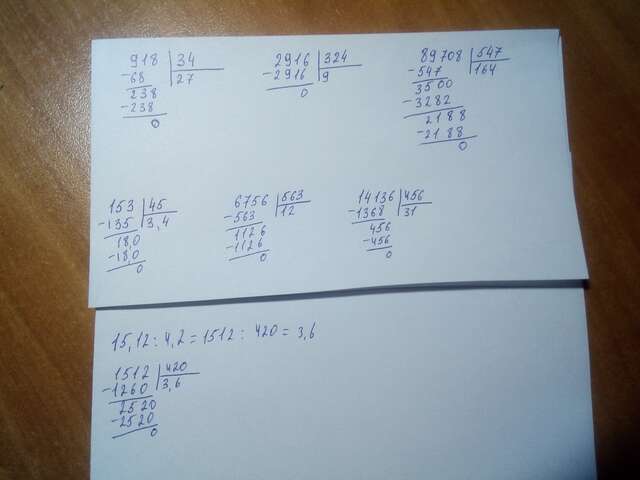 918 34
-68 27
238
-238
0
2916 324
-2916 9
0
89708 547
-547 164
3500
-3282
2188
-2188
0
153 45
-135 3,4
18,0
-18,0
0
6756 563
-563 12
1126
-1126
0
14136 456
-1368 31
456
-456
0
15,12 : 4,2 = 1512 : 420 = 3,6
1512 420
-1260 3,6
2520
-2520
0